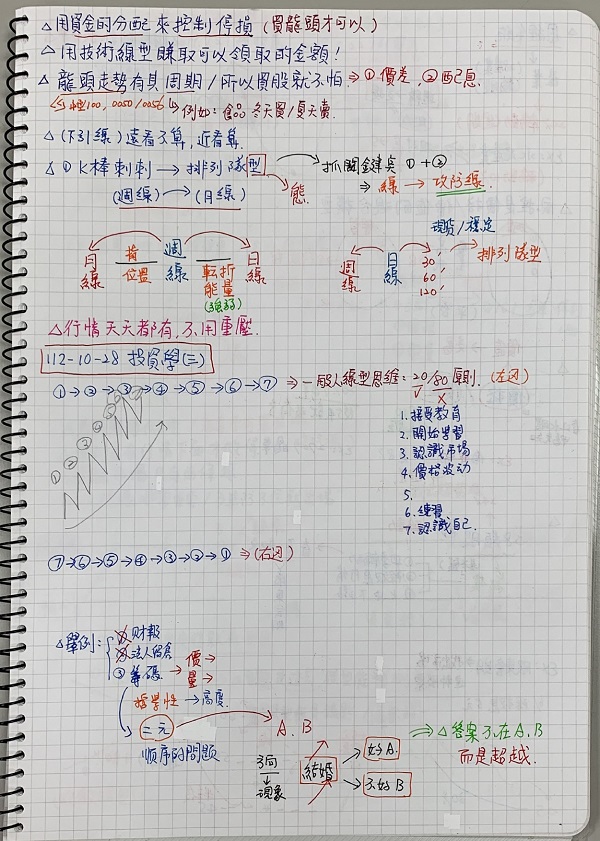 △用資金的分配來控制停損(買龍頭才可以)
△用技術線型賺取可以領取的金額!
△龍頭走勢有其周期/所以買股就不怕⇒①價差,②配息
恒100, 0050/0056 例如:食品 冬天買/夏天賣.
△(下引線)遠看不算,近看算.
△① K棒刺刺→排列隊型 抓關鍵點①+②
(週線)→(月線) 態 ⇒線→攻防線.
現貨/穩定
月線 肯位置 週線 転折能量(強弱) 日線
週線 日線 30' 60' 120' 排列隊型
△行情天天都有,不用重壓.
112-10-28 投資學(三)
①→②→③→④→⑤→⑥→⑦⇒一般人線型思維:20/80原則.(左边)
V X
① ② ③ ④ ⑤ ⑥ ⑦
1.接受教育
2.開始學習
3.認識市場
4.價格波动
5.
6.練習
7.認識自己.
⑦→⑥→⑤→④→③→②→①⇒(右边)
△舉例:
① 財報
② 法人留倉
③ 籌碼→ 價→
量→
哲學性→高度.
二元 A.B
順序的問題
方向
↓
現象
結婚
→好A.
→不好B
⇒△答案不在A.B
而是超越.